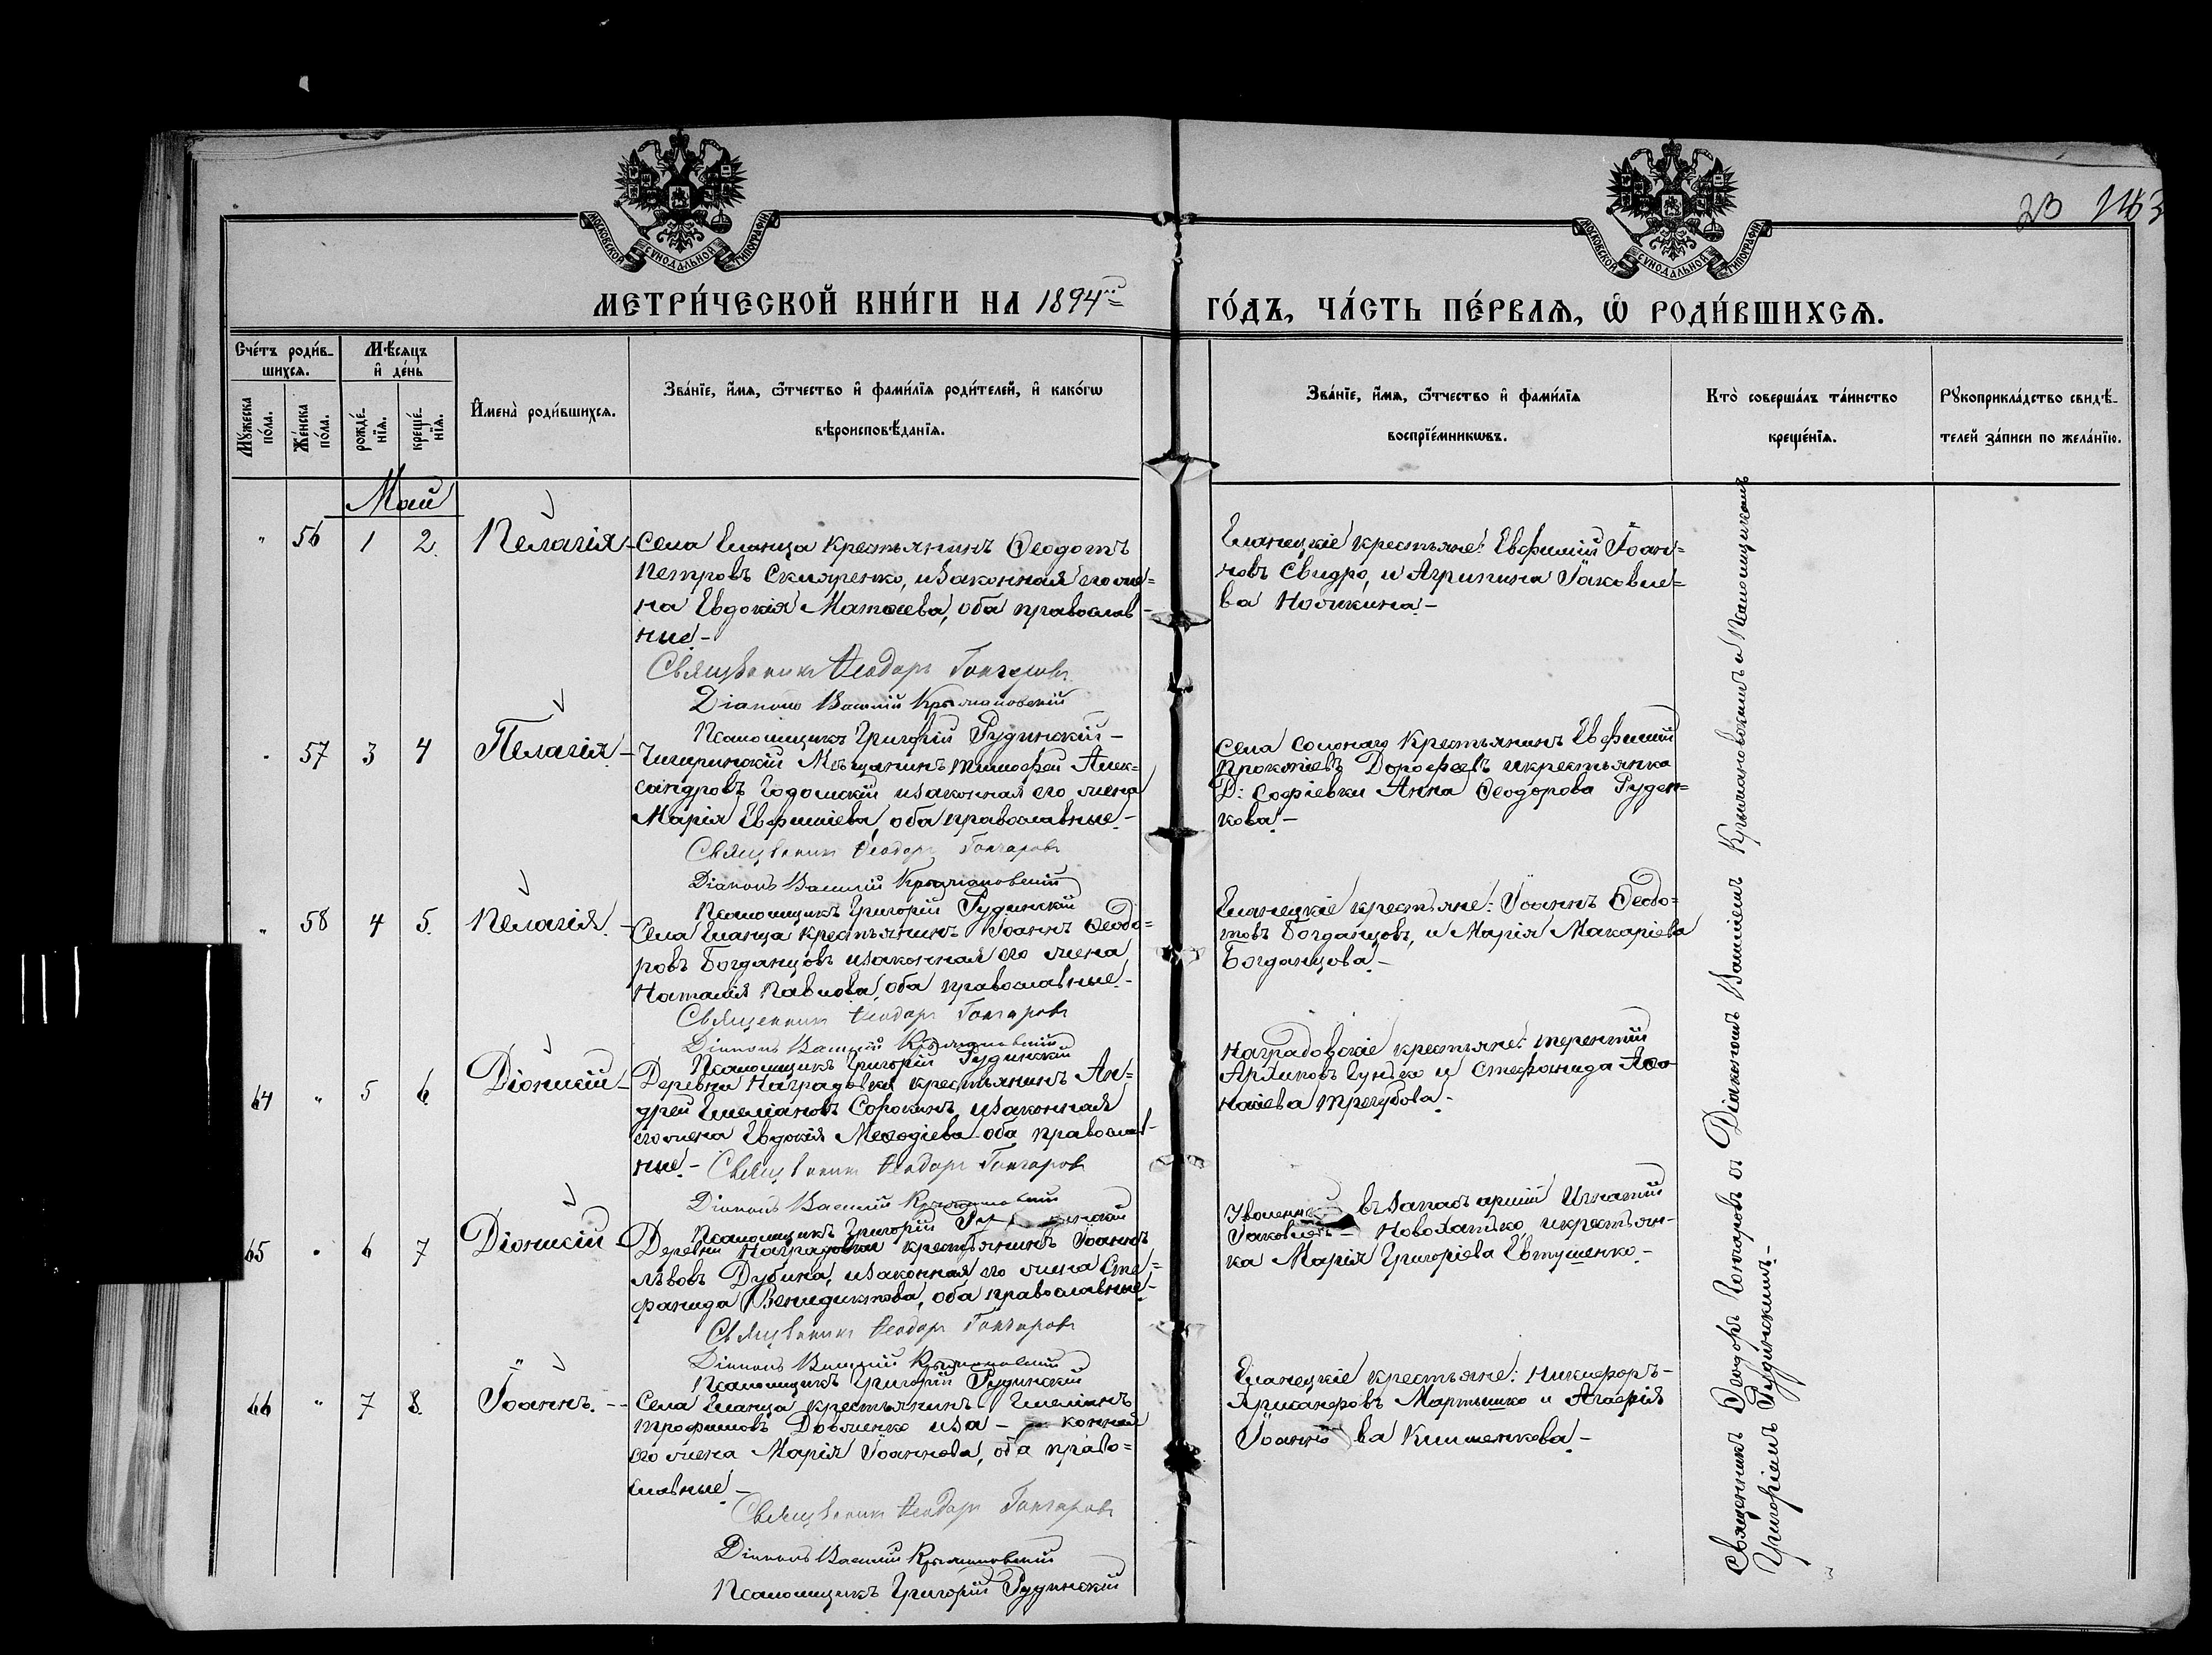 23 1163
МОСКОВСКОЙ СѴНОДАЛЬНОЙ ТИПОГРАФІИ
МОСКОВСКОЙ СѴНОДАЛЬНОЙ ТИПОГРАФІИ
МЕТРИ́ЧЕСКОЙ КНИ́ГИ НА 1894й
ГО́ДЪ, ЧА́СТЬ ПЕ́РВАЯ, Ѡ РОДИ́ВШИХСЯ.
Сче́тъ роди́в-
шихся.
Мꙋжеска
по́ла.
Же́нска
по́ла.
Мѣ́сяцъ
и҆ де́нь
рожде́-
нїя.
креще́-
нїя.
И҆мена̀ роди́вшихся.
Зва́нїе, и҆́мя, ѻ҆́тчество и҆ фами́лїя роди́телей, и҆ како́гѡ
вѣроисповѣ́данїя.
Зва́нїе, и҆́мя, ѻ҆́тчество и҆ фами́лїя
воспрїе́мникѡвъ.
Кто̀ соверша́лъ та́инство
креще́нїя.
Рꙋкоприкла́дство свидѣ́-
телей за́писи по жела́нїю.
Май
" 56 1 2. Пелагія
Села Еланца крестьянинъ Ѳеодотъ
Петровъ Скляренко, и законная его же-
на Евдокія Матѳеева, оба православ-
ные.-
Священникъ Ѳеодоръ Гончаровъ
Діаконъ Василій Крыжановскій
Псаломщикъ Григорій Рудинскій
Еланецкіе крестьяне: Евфимій Іоан-
новъ Свидро, и Агрипина Іаковле-
ва Новикина.-
" 57 3 4 Пелагія
Чигиринскій Мѣщанинъ Тимофей Алек-
сандровъ Годошскій и законная его жена
Марія Евфиміева, оба православные.-
Священникъ Ѳеодоръ Гончаровъ
Діаконъ Василій Крыжановскій
Псаломщикъ Григорій Рудинскій
Села Солонаго Крестьянинъ Евфимій
Прокопіевъ Дорофеевъ и крестьянка
Д: Софіевки Анна Ѳеодорова Руден-
кова.-
" 58 4 5. Пелагія.
Села Еланца крестьянинъ Іоаннъ Ѳеодо-
ровъ Богданцовъ и законная его жена
Наталія Павлова, оба православные.-
Священникъ Ѳеодоръ Гончаровъ
Діаконъ Василій Крыжановскій
Псаломщикъ Григорій Рудинскій
Еланецкіе крестьяне: Іоаннъ Ѳеодо-
товъ Богданцовъ, и Марія Макаріева
Богданцова.-
64 " 5 6. Діонисій
Деревни Наградовки крестьянинъ Ан-
дрей Емеліановъ Сорокинъ, и законная
его жена Евдокія Меѳодіева оба православ-
ные.- Священникъ Ѳеодоръ Гончаровъ
Діаконъ Василій Крыжановскій
Псаломщикъ Григорій Рудинскій
Наградовскіе крестьяне: Терентій
Гунько и Стефанида Аѳа-
насіева Трегубова.-
65 " 6 7 Діонисій
Деревни Наградовки крестьянинъ Іоаннъ
Львовъ Дубина, и законная его жена Сте-
фанида Венидиктова, оба православные.-
Священникъ Ѳеодоръ Гончаровъ
Діаконъ Василій Крыжановскій
Псаломщикъ Григорій Рудинскій
въ запасъ арміи Игнатій
Іаковлевъ - Новохатько, и крестьян-
ка Марія Григоріева Евтушенко.-
66 " 7 8. Іоаннъ.
Села Еланца крестьянинъ Емеліанъ
Трофимовъ Довженко и за - конная
его жена Марія Іоаннова, оба право-
славные.-
Священникъ Ѳеодоръ Гончаровъ
Діаконъ Василій Крыжановскій
Псаломщикъ Григорій Рудинскій
Еланецкіе крестьяне: Никифоръ
Хрисанфовъ Мартышко и Агафія
Іоанно ва Клименкова.-
Священникъ Ѳеодоръ Гончаровъ съ Діакономъ Василіемъ Крыжановскимъ и Псаломщикомъ
Григоріемъ Рудинскимъ.-